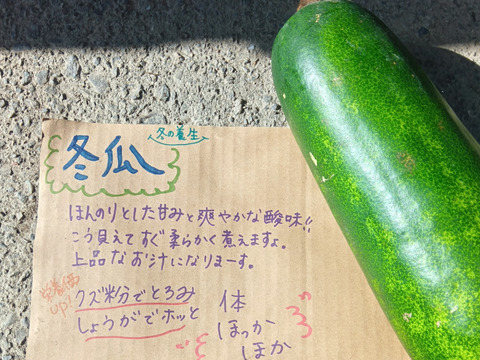 冬の養生
冬瓜
ほんのりとした甘みと爽やかな酸味!!
こう見えてすぐ柔らかく煮えますよ。
上品なお汁になりまーす。
栄養価
up!
クズ粉でとろみ
しょうがでホッと
体
ほっか
ほか